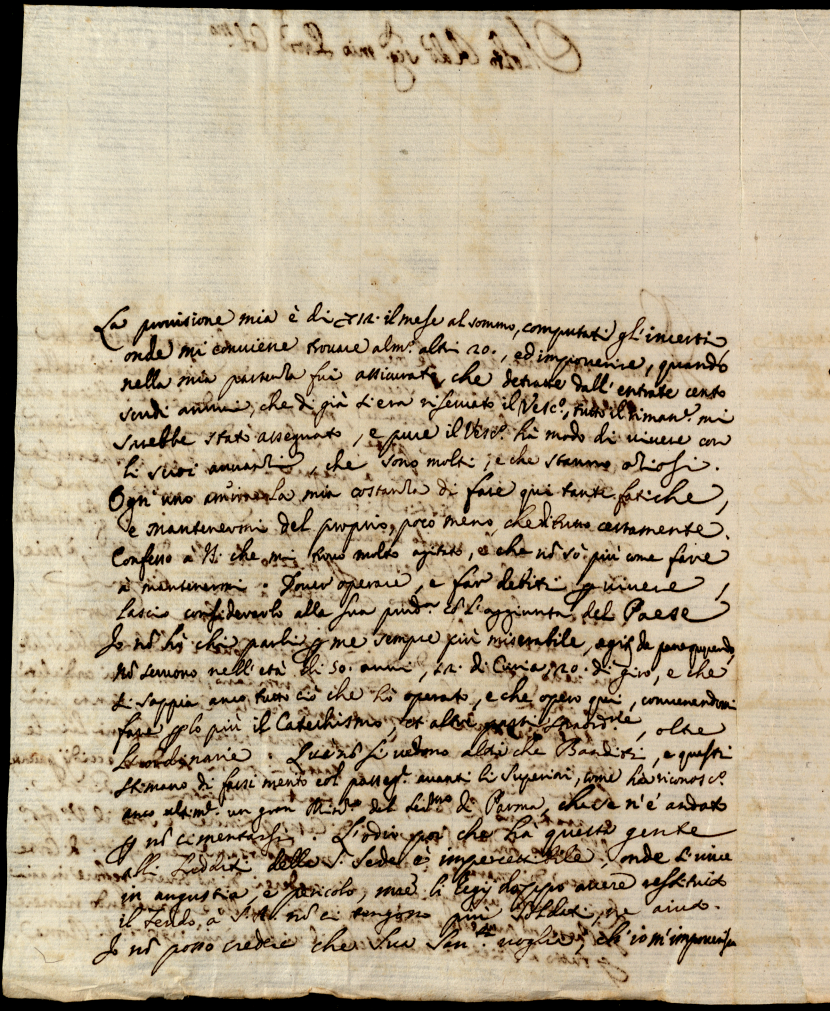 La provisione mia è di 12. il mese al sommo, computati gl'incerti
onde mi conviene trovare alm.º altri 20., ed impoverire, quando
nella mia partenza fui assicurato, che detratte dall'entrate cento
scudi annui, che di già s'era riservato il Vesc.º, tutto il riman.te mi
sarebbe stato assegnato, e pure il Vesc.º hà modo di vivere con
li suoi avanzi, che sono molti, e che stanno otiosi.
Ogn'uno ammira la mia costanza di fare qui tante fatiche,
e mantenermi del proprio, poco meno, che tutto certamente.
Confesso à che mi trovo molto agitato, e che nõ sò più come fare
à mantenermi. Dover operare, e far debiti vivere,
lascio considerarlo alla sua prud.za del Paese
Io nõ hò chi parli me sempre più miserabile,
nõ servono nell'età di 50. anni, 22. di Curia, 20. di giro, e che
si sappia anco tutto ciò che hò operato, e che opero qui, convenendomi
fare lo più il Catechismo, et altre parti, oltre
l'ordinarie. Qua nõ si vedono altri che Banditi, e questi
stimano di farsi merito col passeg. avanti li Superiori, come hà riconosc.º
anco ultim.te un gran Min.º del Ser.mo di Parma, che se n'è andato
nõ cimentarsi. L'odio poi che hà questa gente
alli sudditi della S. Sede è imperscettibile, onde si vive
in angustia, e pericolo, doppo avere restituito
il feudo, à nõ ci tengono più soldati, ne aiuto.
Io nõ posso credere che Sua San.tà voglia, ch'io m'impoverisca